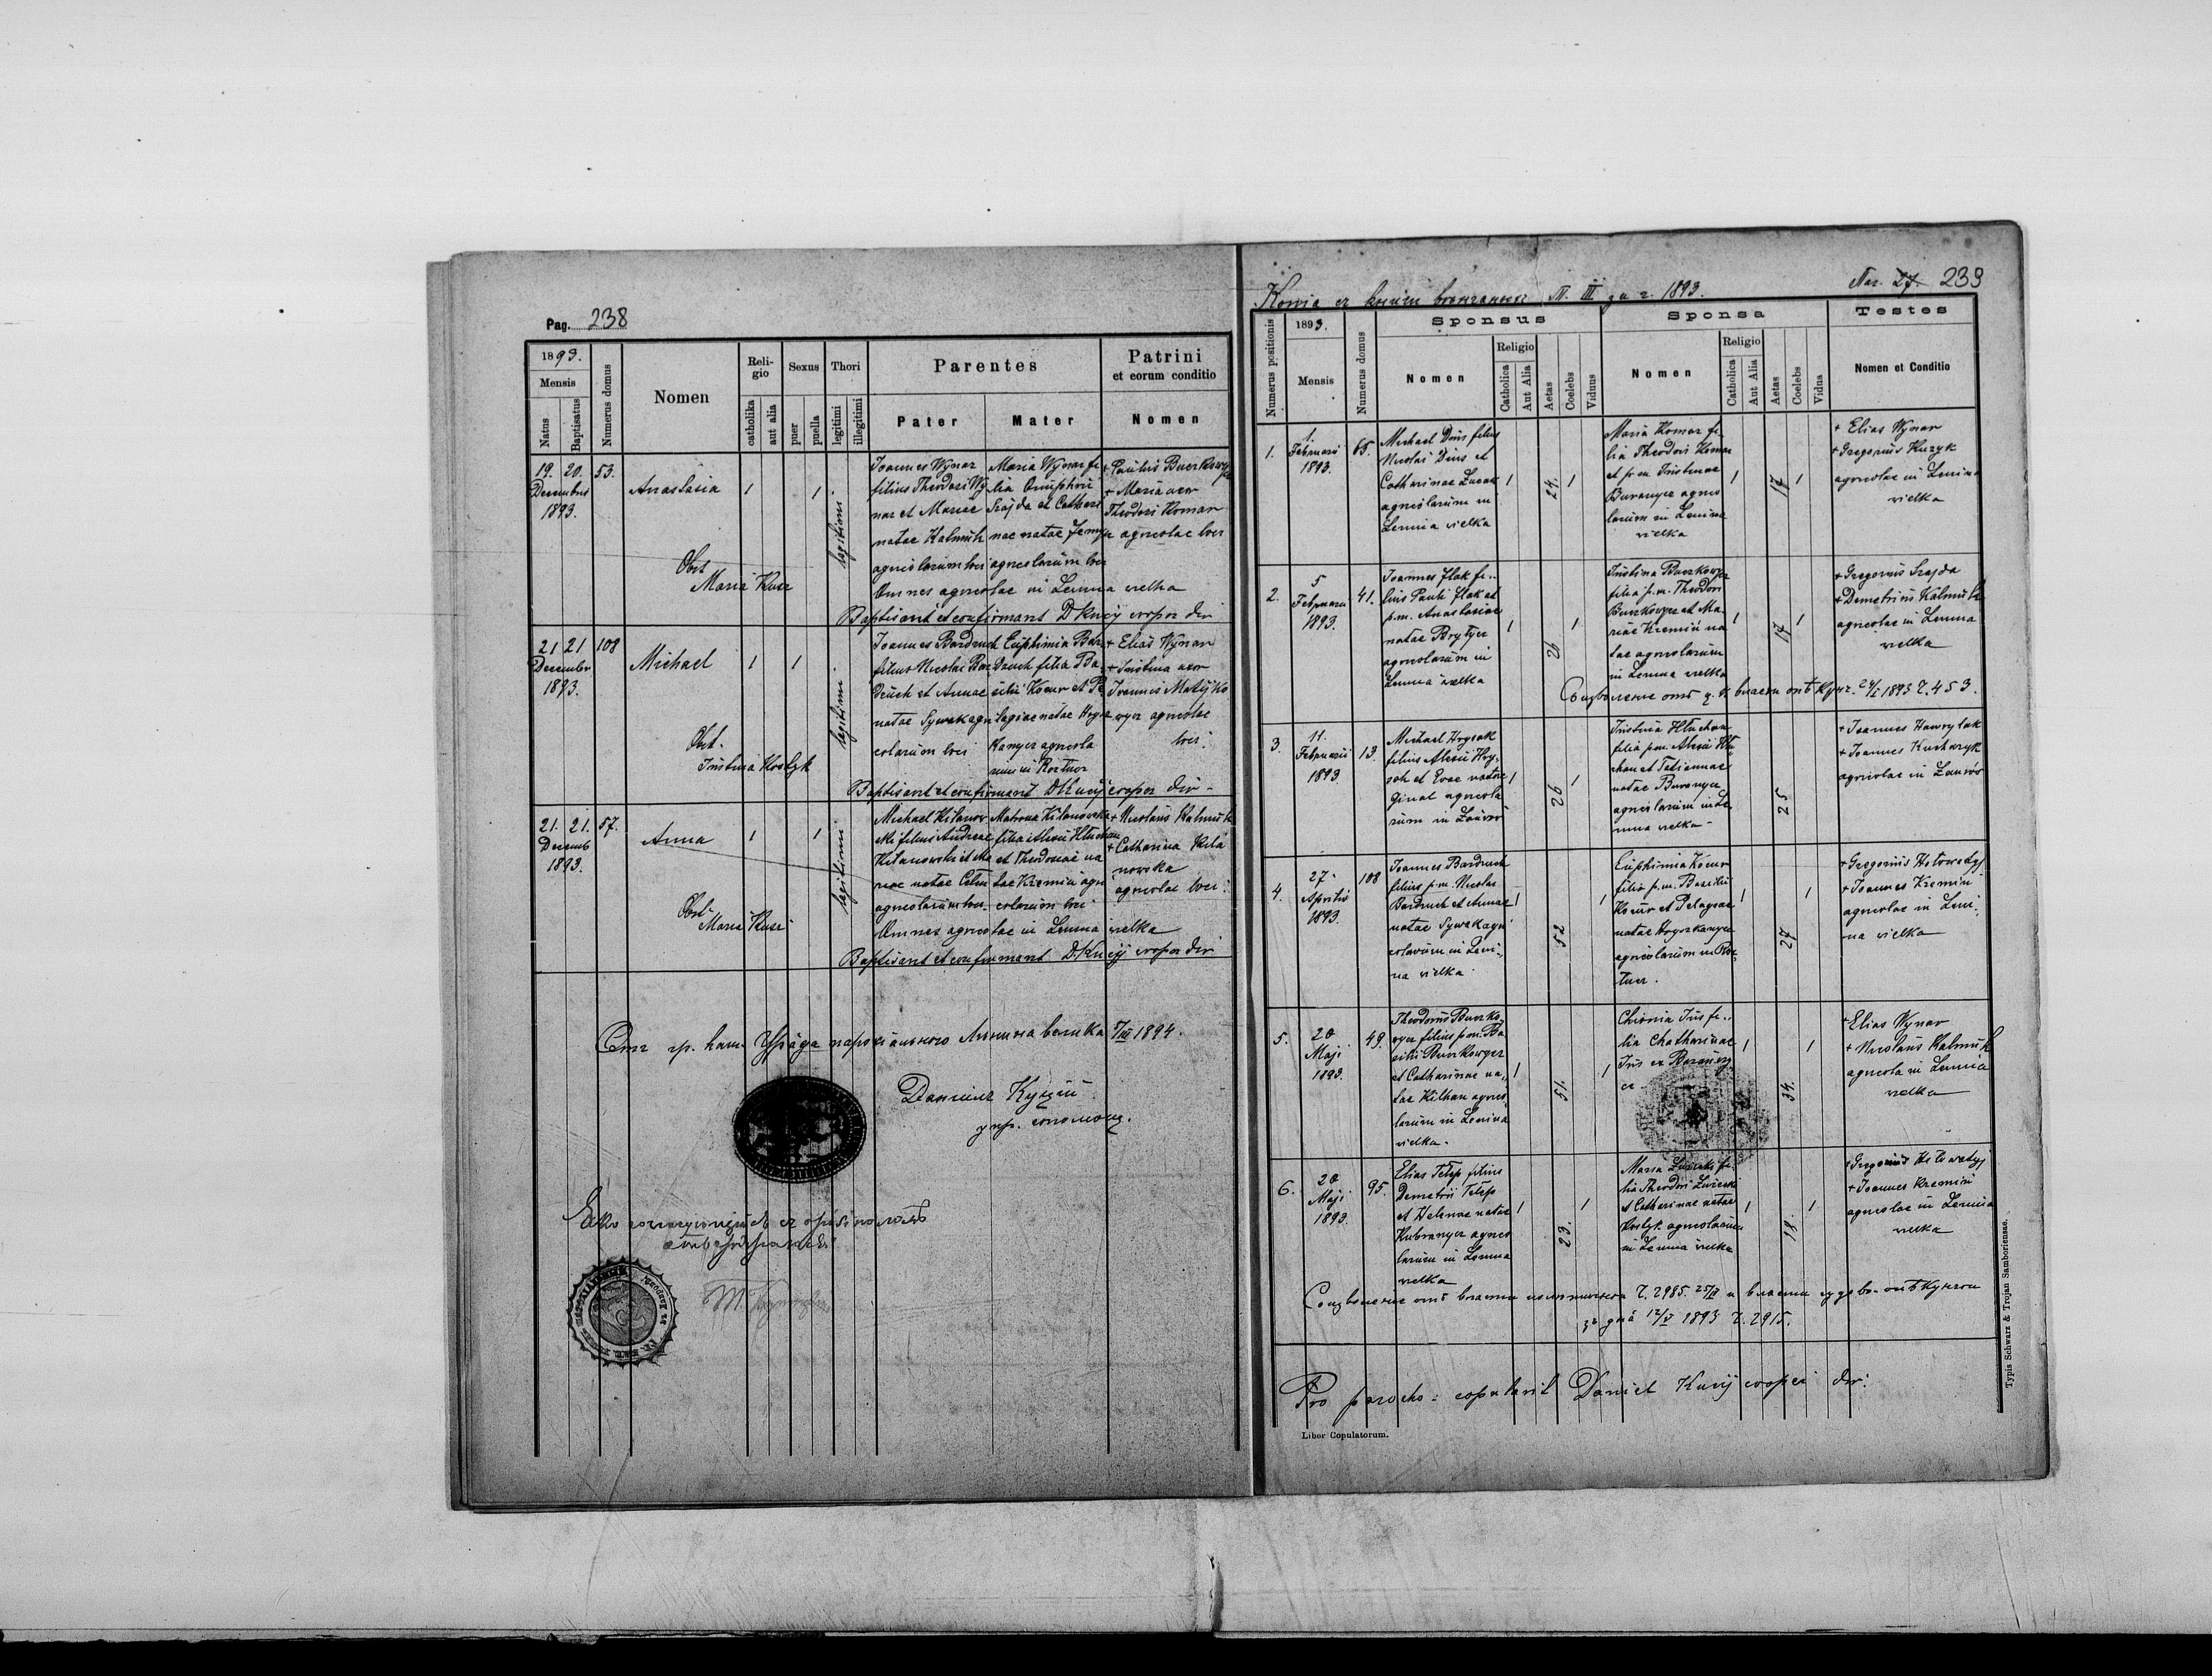 Pag. 238
1893.
Mensis
Natus
Baptisatus
Numerus domus
Nomen
Reli-
gio
catholika
aut alia
Sexus
puer
puella
Thori
legitimi
illegitimi
Parentes
Pater
Mater
Patrini
et eorum conditio
Nomen
19. 20. 53.
Decembris
1893.
Anastasia
1
1
legitimi
Joannes Wynar
filius Theodori Wy
nar et Mariae
natae Kalmuk
agricolarum loci
Maria Wynar fi
lia Onuphrii
Szajda et Cathari
nae natae
agricolarum loci
+ Paulus Buczkowyez
+ Maria uxor
Theodori Komar
agricolae loci
Obst.
Maria Kusz
Omnes agricolae in Lenina welka
Baptisavit et confirmavit D Kucij cooper dir
21 21 108
Decembr
1893.
Michael
1
1
legitimi
Joannes Bardruch
filius Nicolai Bar
druch et Annae
natae Sywak agri
colarum loci
Euphimia Bar
druch filia Ba
silii Kocur et Pe
lagiae natae Hrycz
kanyez agricola
rum in Roztocz
+ Elias Wynar
+ Justina uxor
Joannis Matijko
wyez agricolae
loci.
Obst.
Justina Kostyk
Baptisavit et confirmavit DKucij cooper dir -
21. 21. 57.
Decemb
1893.
Anna
1
1
legitimi
Michael Kilanow
ski filius Andreae
Kilanowski et Ma
riae natae
agricolarum loci.
Matrona Kilanowska
filia Alexii Hluchan
et Theodosiae na
tae Kremin agri
colarum loci
+ Nicolaus Kalmuk
+ Catharina Kila
nowska
agricolae loci.
Obst.
Maria Kusz
Omnes agricolae in Lenina vielka
Baptisavit et confirmavit D. Kucij cooper dir
Отъ гр. кат. Уряда парохіяльного Линина велика 1894.
Даниилъ Куцій
упр. сотр.
239
1893.
Numerus positionis
1893.
Mensis
Numerus domus
Sponsus
Nomen
Religio
Catholica
Aut Alia
Aetas
Coelebs
Viduus
Sponsa
Nomen
Religio
Catholica
Aut Alia
Aetas
Coelebs
Vidua
Testes
Nomen et Conditio
1.
1.
Februarii
1893.
65.
Michael Dus filius
Nicolai Dus et
Catharinae
agricolarum in
Lenina vielka
1
24.
1
Maria Komar fi-
lia Theodori Komar
et p.m. Justinae
Buranycz agrico
larum in Lenina
vielka
1
17
1
+ Elias Wynar
+ Gregorius Kuzyk
agricolae in Lenina
vielka
2.
5
Februarii
1893.
41.
Joannes Ilak fi..
lius Pauli Ilak et
p.m. Anastasiae
natae Brytycz
agricolarum in
Lenina vielka
1
26
1
Justina Buczkowyez
filia p.m. Theodori
Buczkowyez et Ma-
riae Kremin na
tae agricolarum
in Lenina vielka
1
17
1
+ Gregorius Szajda
+ Demetrius Kalmuk
agricolae in Lenina
vielka
1893 Ч. 453.
3.
11.
Februarii
1893
13.
Michael Hrycak
filius Alexii Hry-
cak et Evae natae
Ginal agricola
rum in
1
26
1
Justina Hluchan
filia p.m. Alexii Hlu
chan et Tatiannae
natae Buranycz
agricolarum in Le
nina vielka -
25
+ Joannes Hawrylak
+ Joannes Kucharzyk
agricolae in
4.
27.
Aprilis
1893.
108
Joannes Bardruch
filius p.m. Nicolai
Bardruch et Annae
natae Sywak agri
colarum in Leni-,
na vielka
1
52
1
Euphimia Kocur
filia p.m. Basilii
Kocur et Pelagiae
natae Hryczkanycz
agricolarum in Roz,
tocz.
1
27
1
+ Gregorius Holowatyj
+ Joannes Kremin
agricolae in Leni-,
na vielka
5.
20
Maji
1893.
49.
Theodorus Buczko
wyez filius p.m. Ba
silii Buczkowyez
et Catharinae na,,
tae Kilhan agrico
larum in Lenina
vielka.
1
51.
1
Chionia Jus fi..
lia Chatharinae
Jus
1
34.
1
+ Elias Wynar
+ Nicolaus Kalmuk
agricola in Lenina
vielka
6.
20
Maji
1893.
95.
Elias Telep filius
Demetrii Telep
et Helenae natae
Kubranycz agrico
larum in Lenina
vielka
1
23.
1
Maria Luzecki fi-
lia Theodori Luzecki
et Catharinae natae
Kostyk agricolarum
in Lenina vielka
1
18.
1
+ Gregorius Holowatyj
+ Joannes Kremin
agricolae in Lenina
vielka
Ч. 2985.
1893 Ч. 2915.
Pro parocho: copulavit Daniel Kucij cooper dir.
Liber Copulatorum.
Typis Schwarz & Trojan Samboriensae.